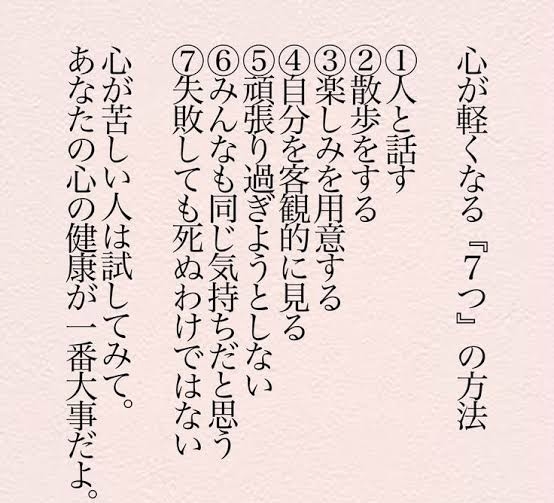 心が軽くなる『7つ』の方法
①人と話す
②散歩をする
③楽しみを用意する
④自分を客観的に見る
⑤頑張り過ぎようとしない
⑥みんなも同じ気持ちだと思う
⑦失敗しても死ぬわけではない
心が苦しい人は試してみて。
あなたの心の健康が一番大事だよ。